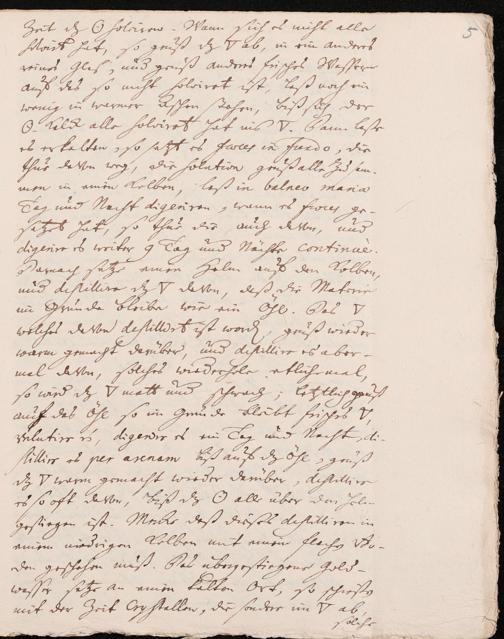 5
Zeit dz ☉ solviren. Wann sich es nicht alles
solvirt hat, so geuß dz ▽ ab, in ein anderes
reines Glaß, und geuß anderes frisches Wasser
auff das so nicht solviret ist, laß noch ein
wenig in warmer Aschen stehen, biß sich der
☉ Kalck alle solviret hat ins ▽. Dann laße
es erkalten, so setzt es fæces in fundo, die
thue davon weg, die solution geuß alle zusam-
men in einen Kolben, laß in balneo mariæ
Tag und Nacht digeriren, wann es fæces ge-
setzet hat, so thue die auch davon, und
digerire es weiter 9 Tag und Nächte continue.
Darnach setze einen Helm auff den Kolben,
und destillire dz ▽ davon, daß die Materie
im Grunde bleibe wie ein Öhl. Das ▽
welches davon destilliret ist word, geuß wieder
warm gemacht darüber, und destillire es aber-
mal davon, solches wiederhole etlichmal,
so wird dz ▽ matt und schwach; letztlich geuß
auff das Öhl so im Grunde bleibt frisches ▽,
digerire es ein Tag und Nacht, di-
stillire es per arenam biß auff dz Öhl, geuß
dz ▽ warm gemacht wieder darüber, destillire
es so offt davon, biß dz ☉ alle über den Helm
gestiegen ist. Merke daß dieses destilliren in
einem niedrigen Kolben mit einem flachen Bo-
den geschehen muß. Das übergestiegene Gold-
wasser setze an einen kalten Ort, so schießen
mit der Zeit Crystallen, die sonder im ▽ ab,
solche